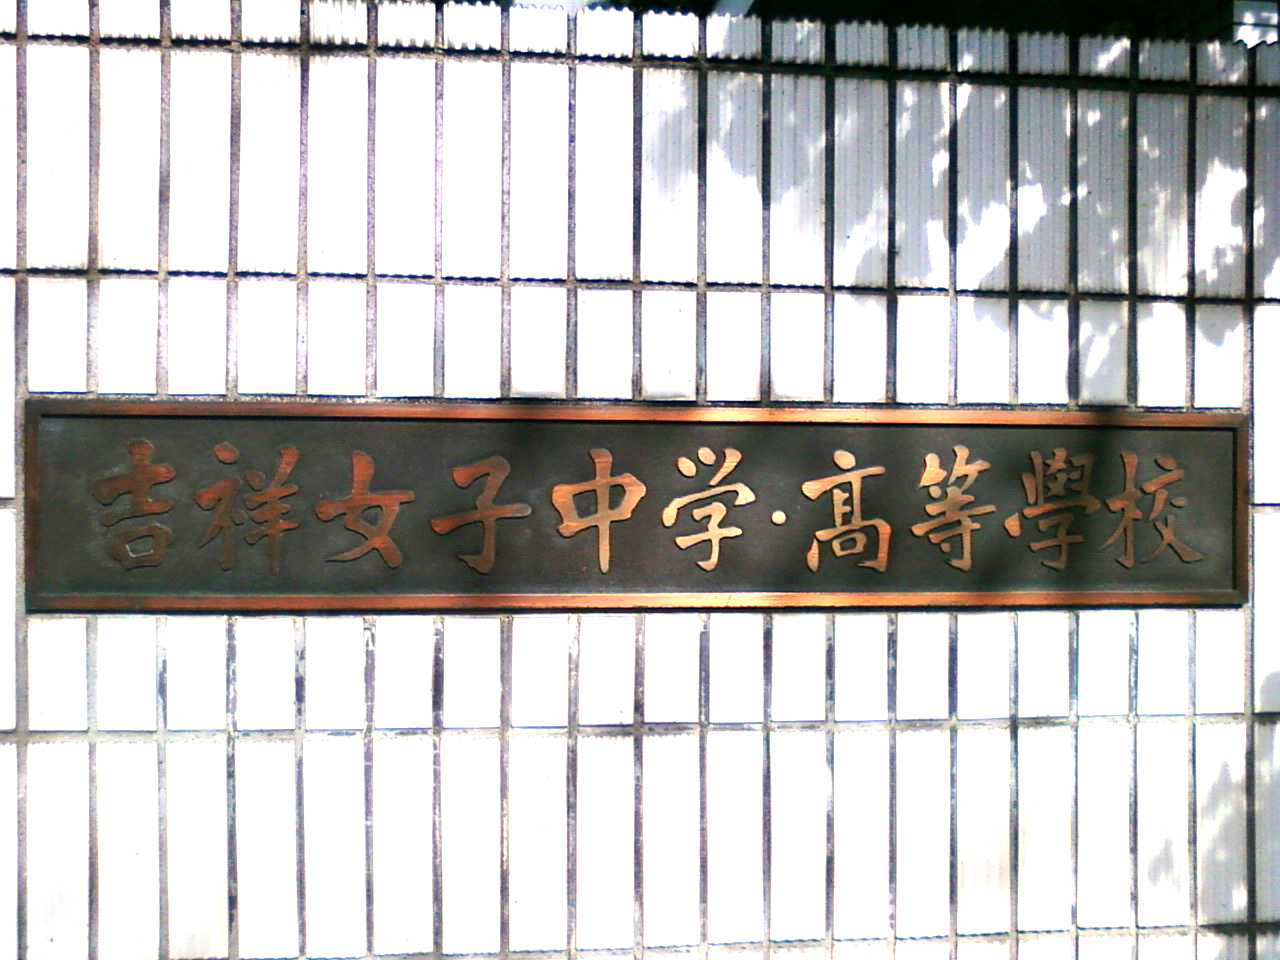 吉祥女子中学・髙等學校